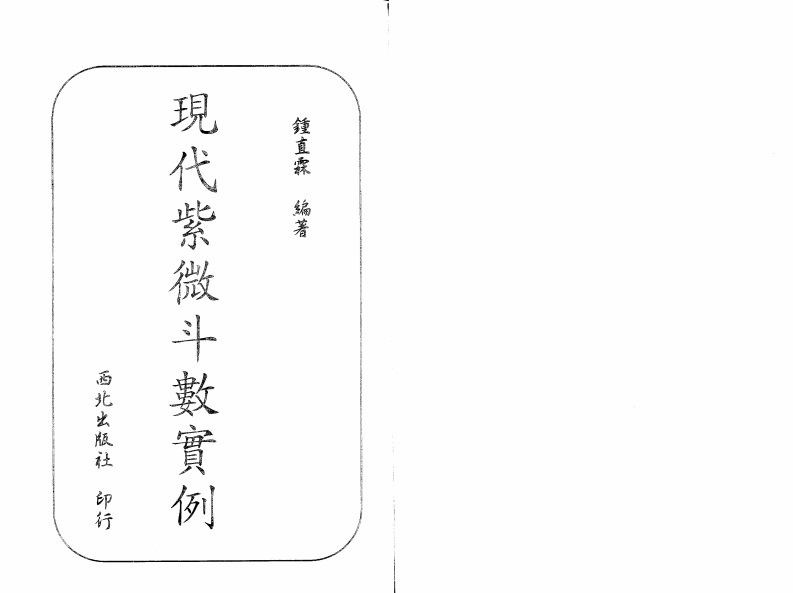 鍾直霖　編著
現代紫微斗數實例
西北出版社　印行